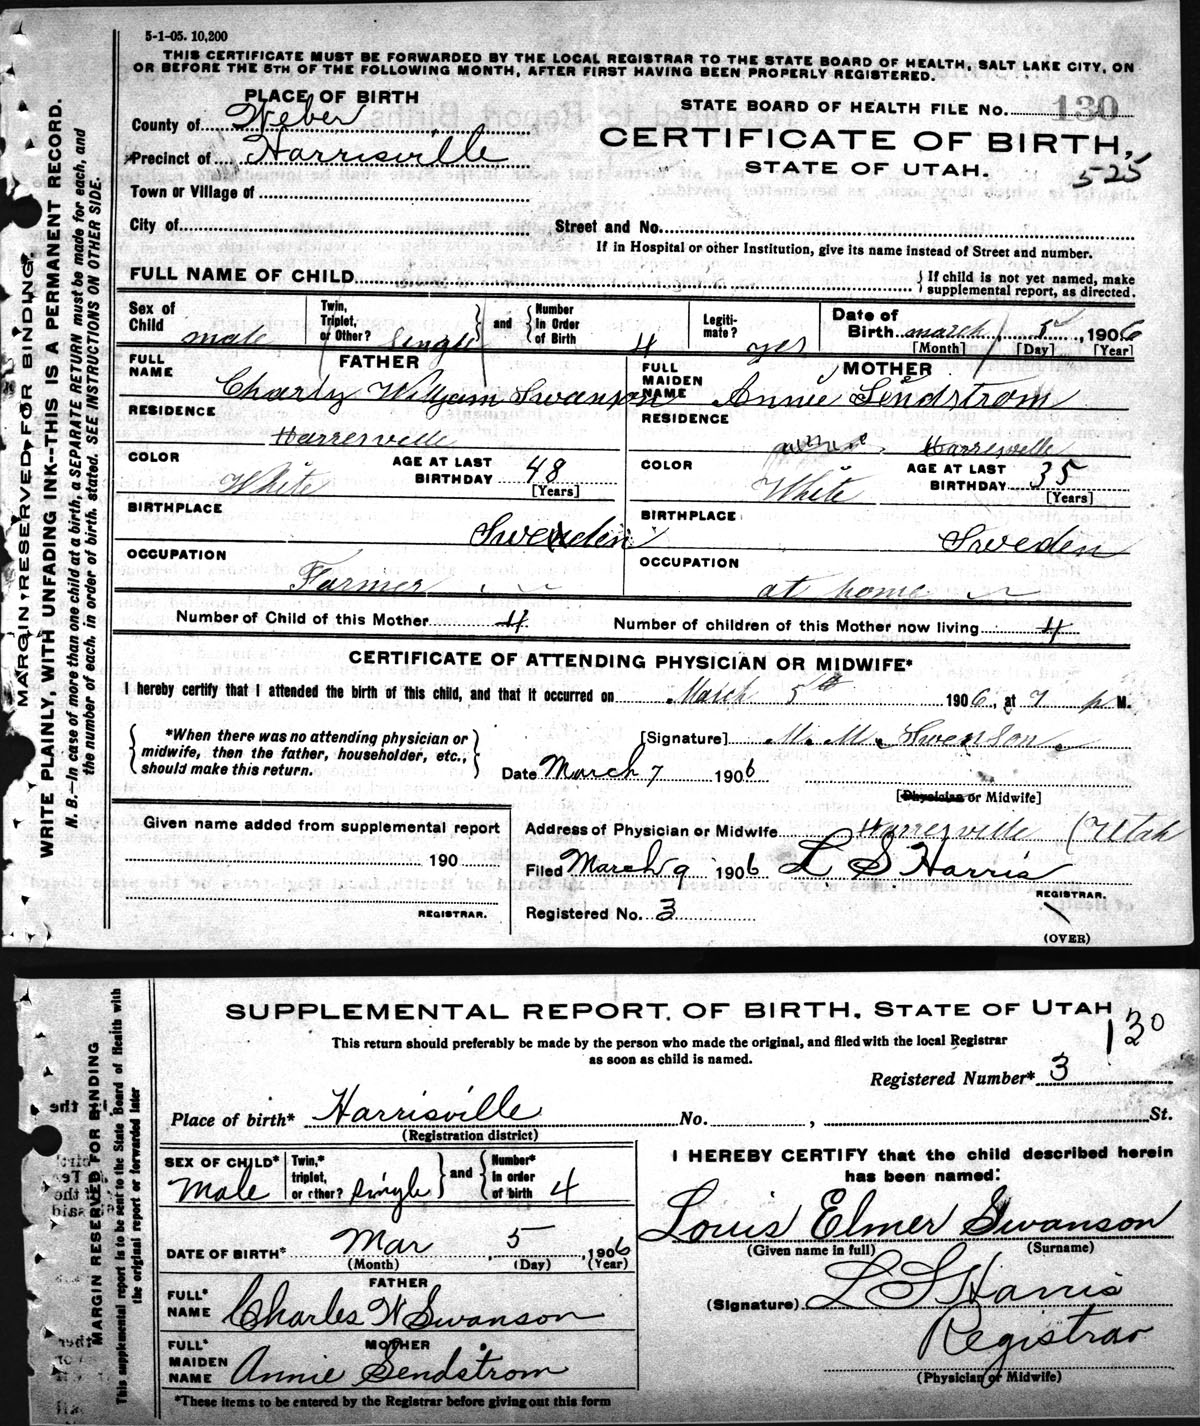 5-1-05. 10,200
THIS CERTIFICATE MUST BE FORWARDED BY THE LOCAL REGISTRAR TO THE STATE BOARD OF HEALTH, SALT LAKE CITY, ON
OR BEFORE THE 5TH OF THE FOLLOWING MONTH, AFTER FIRST HAVING BEEN PROPERLY REGISTERED.
PLACE OF BIRTH
County of Weber
Precinct of Harrisville
Town or Village of
City of
STATE BOARD OF HEALTH FILE No. 130
CERTIFICATE OF BIRTH,
STATE OF UTAH.
525
Street and No.
If in Hospital or other Institution, give its name instead of Street and number.
FULL NAME OF CHILD
If child is not yet named, make
supplemental report, as directed.
Sex of Child male
Twin, Triplet, or Other? Single
and Number in Order of Birth 4
Legiti-mate? yes
Date of Birth march 5 1906
[Month] [Day] [Year]
FATHER
FULL NAME Charly William Swanson
RESIDENCE
Harresville
COLOR White
AGE AT LAST BIRTHDAY 48
[Years]
BIRTHPLACE
Sweden
OCCUPATION
Farmer
MOTHER
FULL MAIDEN NAME Annie Sendstrom
RESIDENCE
Harresville
COLOR White
AGE AT LAST BIRTHDAY 35
[Years]
BIRTHPLACE
Sweden
OCCUPATION
at home
Number of Child of this Mother 4
Number of children of this Mother now living 4
CERTIFICATE OF ATTENDING PHYSICIAN OR MIDWIFE*
I hereby certify that I attended the birth of this child, and that it occurred on March 5th 1906, at 7 p M.
*When there was no attending physician or
midwife, then the father, householder, etc.,
should make this return.
[Signature] M. M. Swenson
Date March 7 1906
[Physician or Midwife]
Given name added from supplemental report
190
REGISTRAR.
Address of Physician or Midwife Harresville Utah
Filed March 9 1906 L S Harris
REGISTRAR.
Registered No. 3
(OVER)
MARGIN RESERVED FOR BINDING.
WRITE PLAINLY, WITH UNFADING INK--THIS IS A PERMANENT RECORD.
N. B.—In case of more than one child at a birth, a SEPARATE RETURN must be made for each, and
the number of each, in order of birth, stated. SEE INSTRUCTIONS ON OTHER SIDE.
SUPPLEMENTAL REPORT OF BIRTH, STATE OF UTAH
130
This return should preferably be made by the person who made the original, and filed with the local Registrar
as soon as child is named.
Registered Number* 3
Place of birth* Harrisville No. , St.
(Registration district)
SEX OF CHILD* Male
Twin,* triplet, or other? Single
and Number* in order of birth 4
DATE OF BIRTH* Mar 5, 1906
(Month) (Day) (Year)
FATHER
FULL* NAME Charles W Swanson
MOTHER
FULL* MAIDEN NAME Annie Sendstrom
*These items to be entered by the Registrar before giving out this form
I HEREBY CERTIFY that the child described herein
has been named:
Louis Elmer Swanson
(Given name in full) (Surname)
(Signature) L S Harris
Registrar
(Physician or Midwife)
MARGIN RESERVED FOR BINDING
This supplemental report is to be sent to the State Board of Health with
the original report or forwarded later